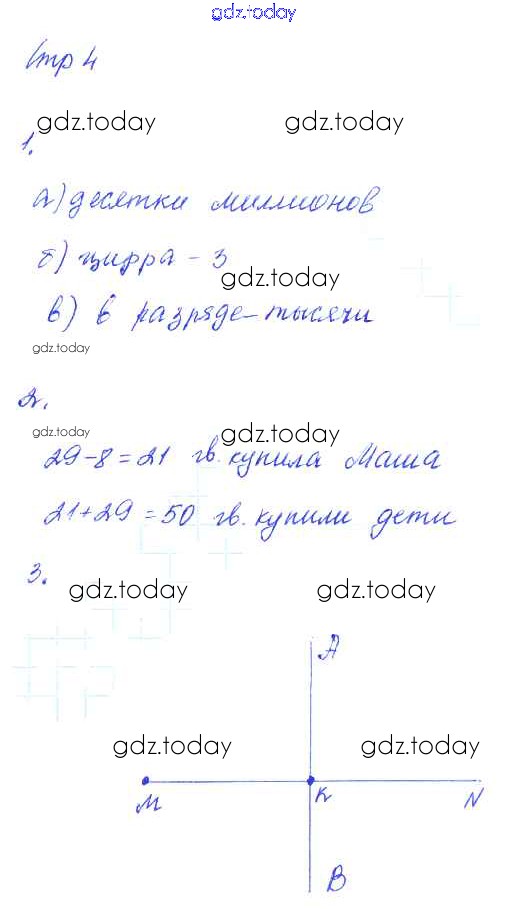 gdz.today
Стр 4
gdz.today gdz.today
1.
а) десятки миллионов
б) цифра - 3
gdz.today
в) в разряде - тысячи
gdz.today
2.
gdz.today gdz.today
29-8=21 гв. купила Маша
21+29=50 гв. купили дети
3.
gdz.today gdz.today
A
gdz.today gdz.today
M K N
B